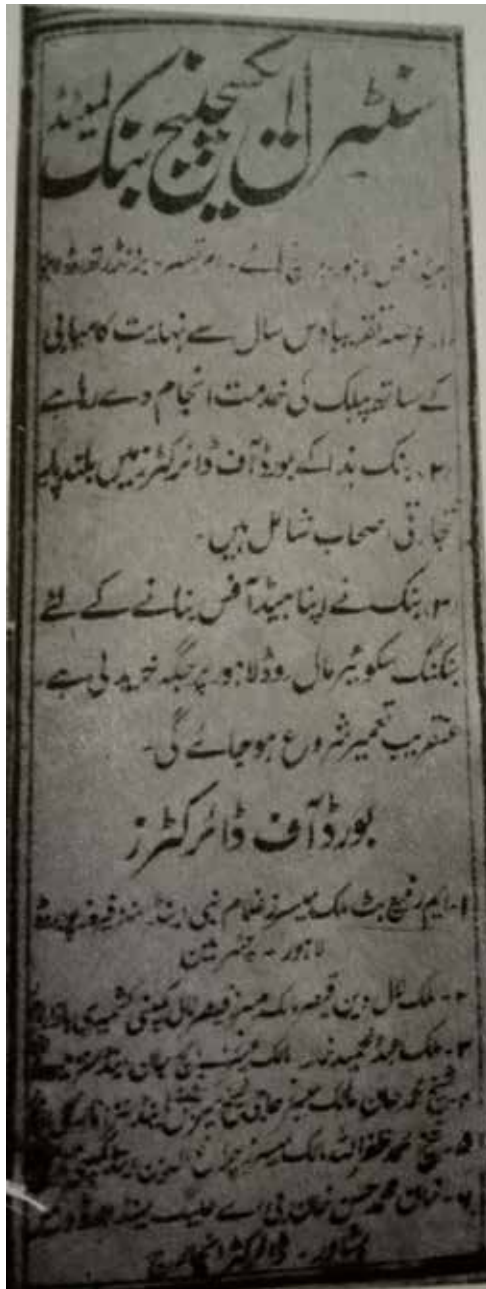 سنٹرل ایکسچینج بنک لمیٹڈ
ہیڈ آفس لاہور
۱۔ عرصہ تقریباً دس سال سے نہایت کامیابی
کے ساتھ پبلک کی خدمت انجام دے رہا ہے
۲۔ بنک ہذا کے بورڈ آف ڈائرکٹرز میں بلند پایہ
تجارتی اصحاب شامل ہیں۔
۳۔ بنک نے اپنا ہیڈ آفس بنانے کے لئے
بنکنگ سکوئیر مال روڈ لاہور پر جگہ خرید لی ہے۔
عنقریب تعمیر شروع ہو جائے گی۔
بورڈ آف ڈائرکٹرز
۱۔ ایم رفیع بٹ مالک میسرز غلام نبی اینڈ سنز فیروز پور روڈ
لاہور۔ چیئرمین
۲۔ ملک لال دین قیصر مالک میسرز قیصر مال کمپنی کشمیری بازار
۳۔ ملک عبدالحمید خاں مالک
۴۔ شیخ محمد جان مالک میسرز حاجی شیخ اینڈ سنز انارکلی
۵۔ شیخ محمد ظفر اللہ مالک میسرز چراغ الدین اینڈ کمپنی
۶۔ خان محمد حسن خان بی اے علیگ لینڈ لارڈ
پشاور۔ ڈائرکٹر انچارج